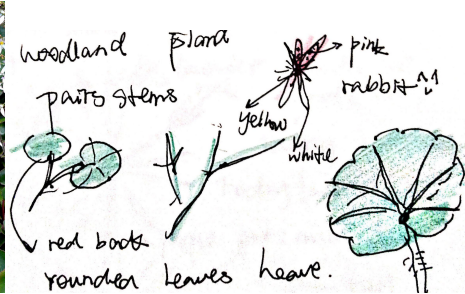 woodland plant
pink
rabbit
pairs stems
yellow
white
red back
rounded leaves heave.